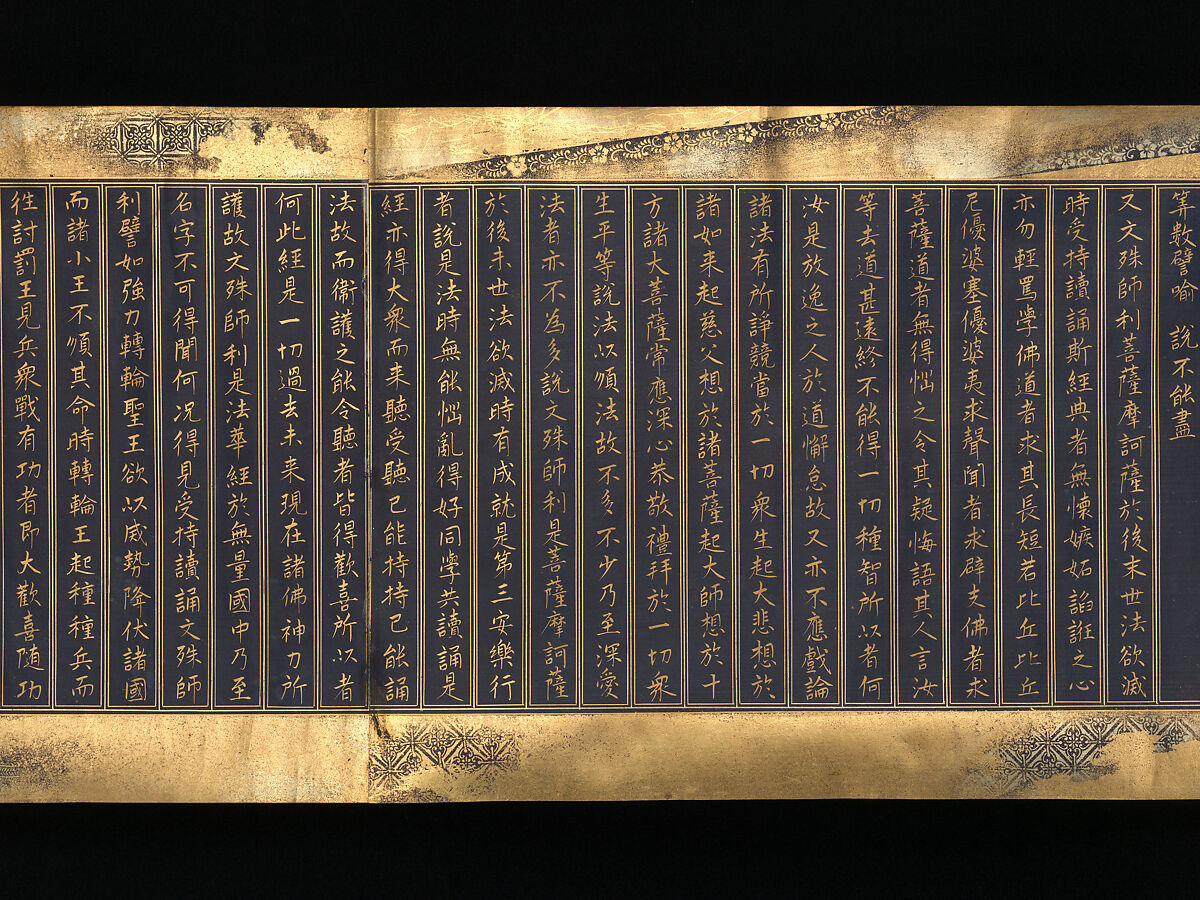 筭數譬喻　說不能盡
又文殊師利菩薩摩訶薩於後末世法欲滅
時受持讀誦斯經典者無懷嫉妬諂誑之心
亦勿輕罵學佛道者求其長短若比丘比丘
尼優婆塞優婆夷求聲聞者求辟支佛者求
菩薩道者無得惱之令其疑悔語其人言汝
等去道甚遠終不能得一切種智所以者何
汝是放逸之人於道懈怠故又亦不應戲論
諸法有所諍競當於一切衆生起大悲想於
諸如来起慈父想於諸菩薩起大師想於十
方諸大菩薩常應深心恭敬禮拜於一切衆
生平等說法以順法故不多不少乃至深愛
法者亦不為多說文殊師利是菩薩摩訶薩
於後末世法欲滅時有成就是第三安樂行
者說是法時無能惱亂得好同學共讀誦是
經亦得大衆而来聽受聽已能持持已能誦
法故而衛護之能令聽者皆得歡喜所以者
何此經是一切過去未来現在諸佛神力所
護故文殊師利是法華經於無量國中乃至
名字不可得聞何況得見受持讀誦文殊師
利譬如強力轉輪聖王欲以威勢降伏諸國
而諸小王不順其命時轉輪王起種種兵而
往討罰王見兵衆戰有功者即大歡喜随功